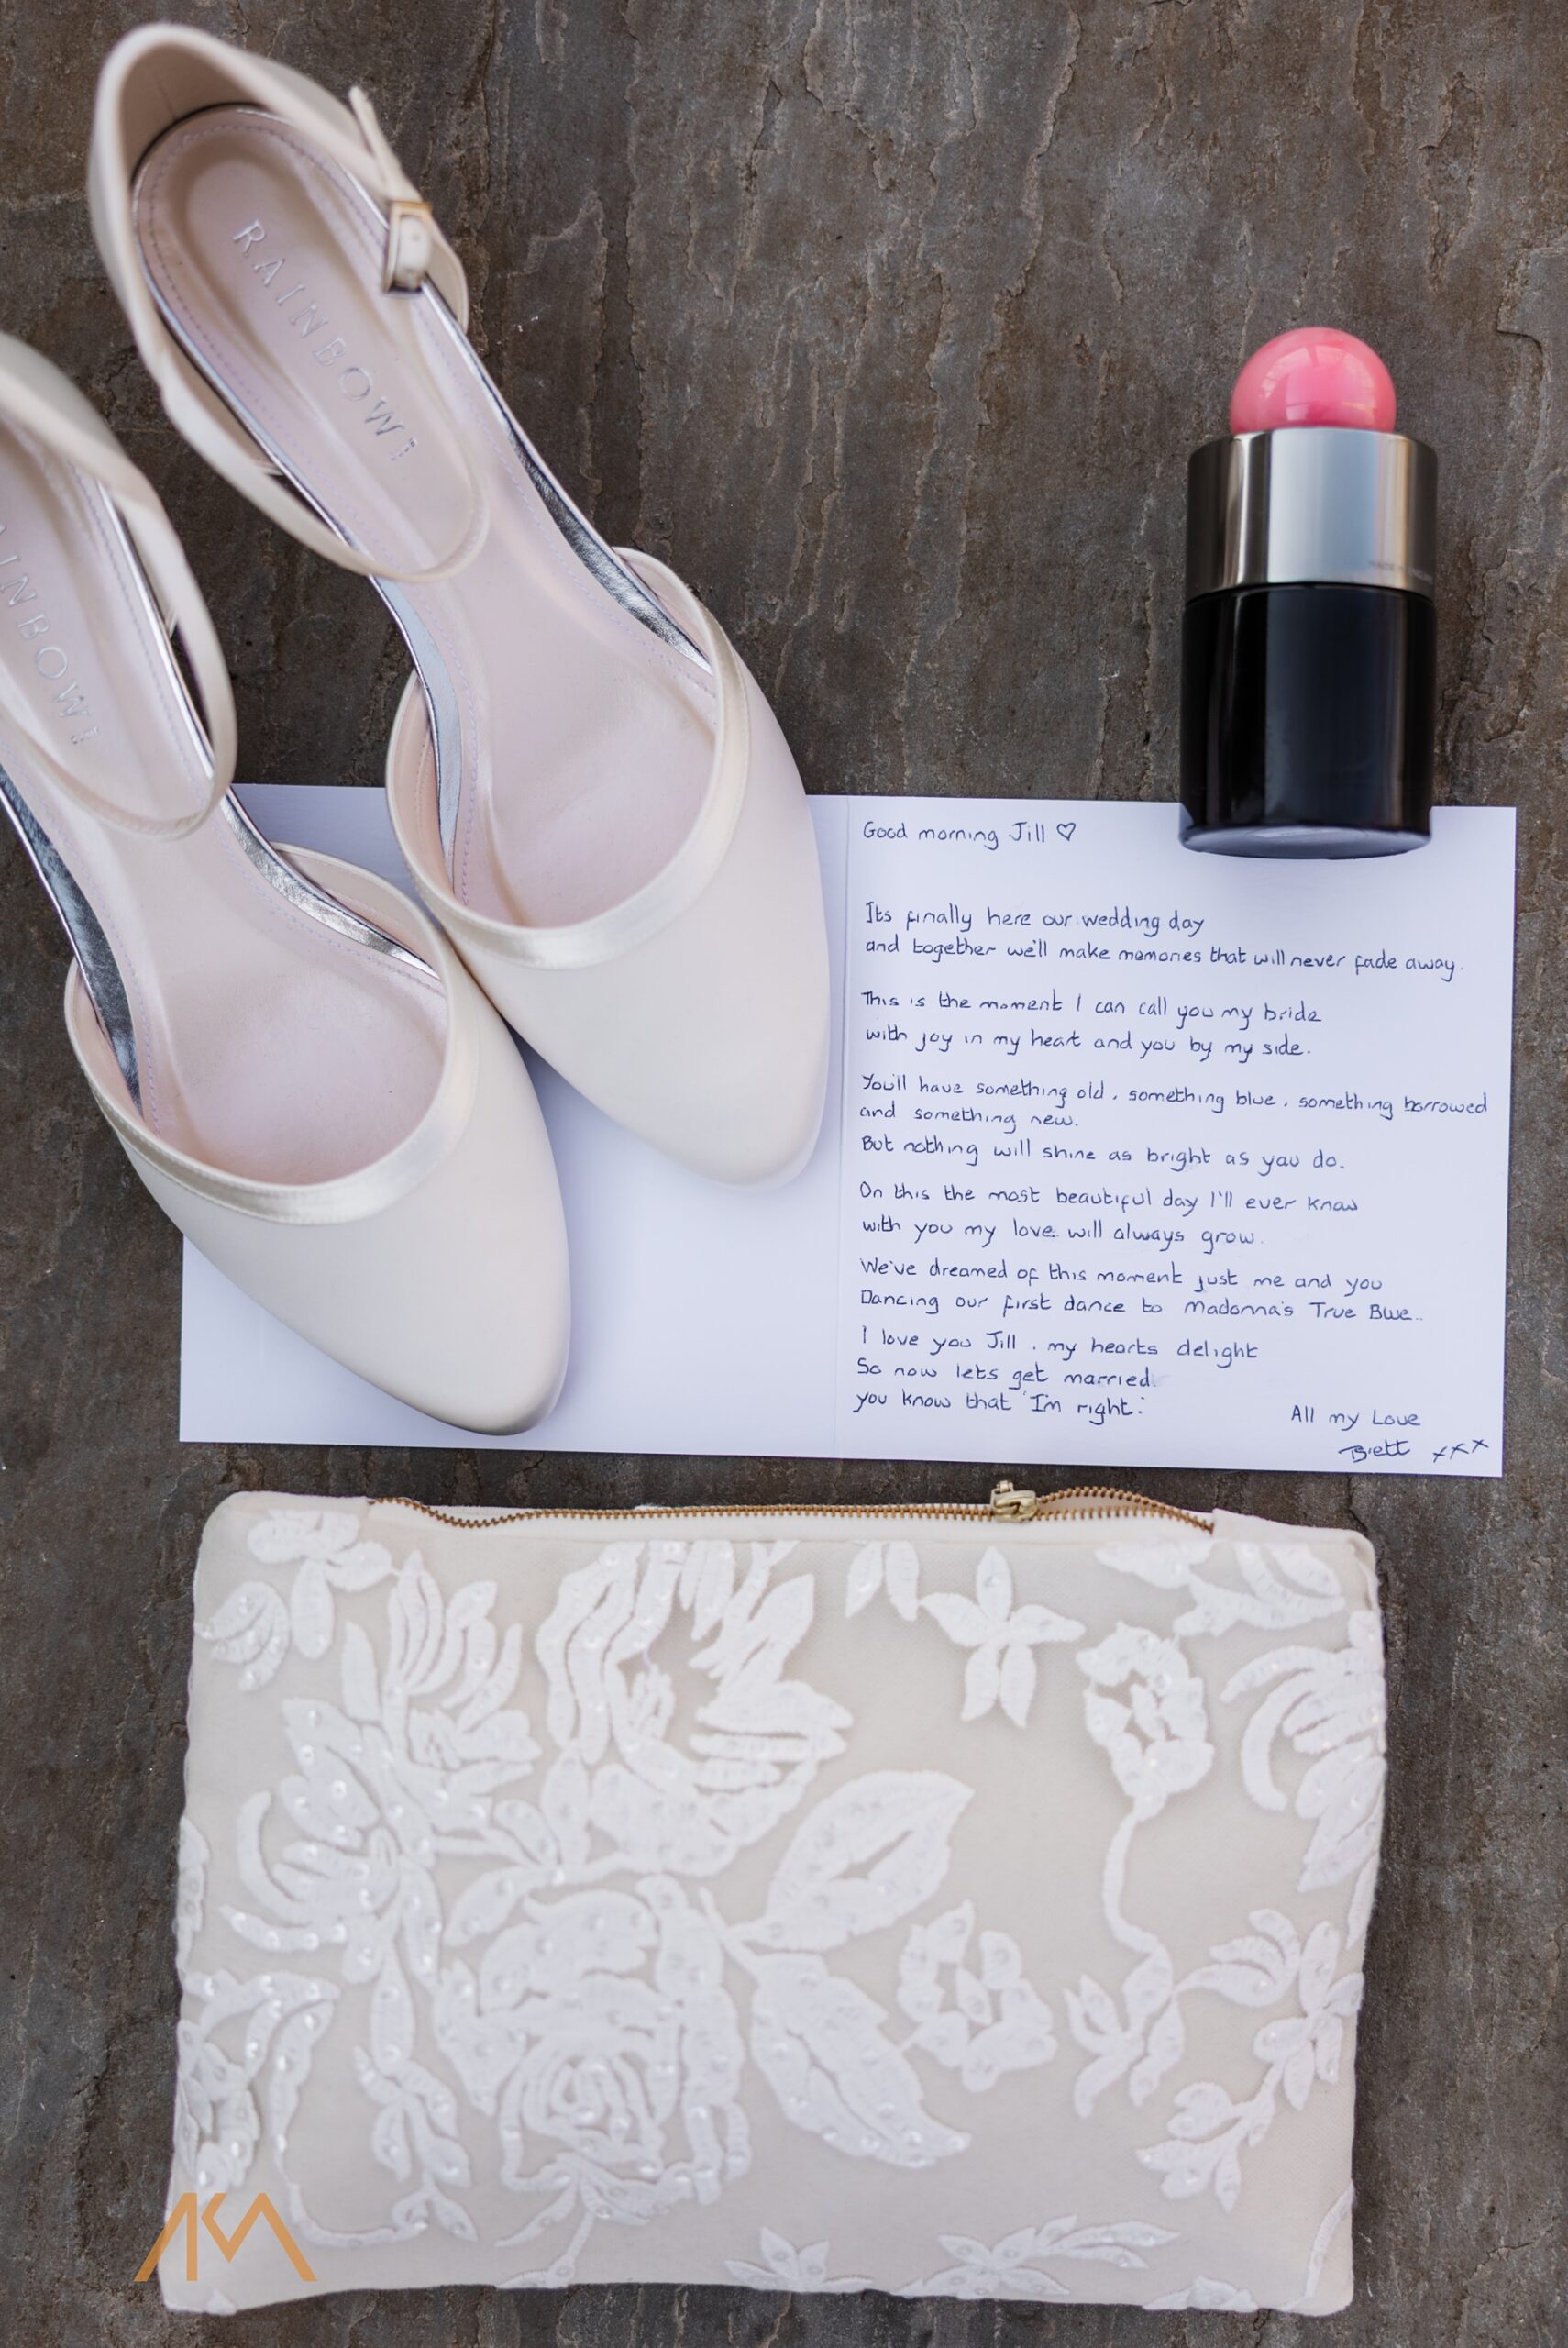 RAINBOW
AINBOW
Good morning Jill ♡
Its finally here our wedding day
and together we'll make memories that will never fade away.
This is the moment I can call you my bride
with joy in my heart and you by my side.
You'll have something old, something blue, something borrowed
and something new.
But nothing will shine as bright as you do.
On this the most beautiful day I'll ever know
with you my love will always grow.
We've dreamed of this moment just me and you
Dancing our first dance to Madonna's True Blue..
I love you Jill, my hearts delight
So now lets get married
you know that I'm right.
All my Love
Brett xxx